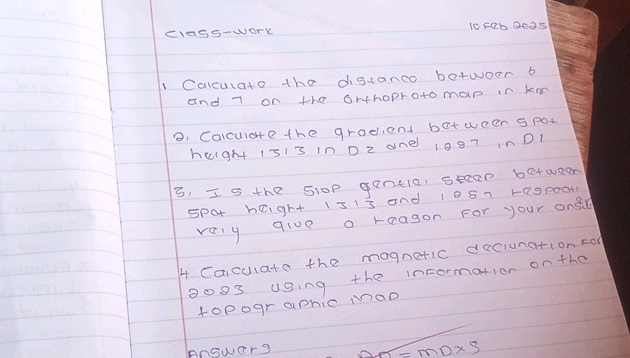 Class-work 10 Feb 2025
1 Calculate the distance between 6
and 7 on the Orthophoto map in km
2. Calculate the gradient between spot
height 1313 in D2 and in D1
3. Is the slop gential steep between
spot height 1313 and
rely give a reason for your
4 Calculate the magnetic declination For
2023 using the information on the
topographic map
Answers
= MD×S